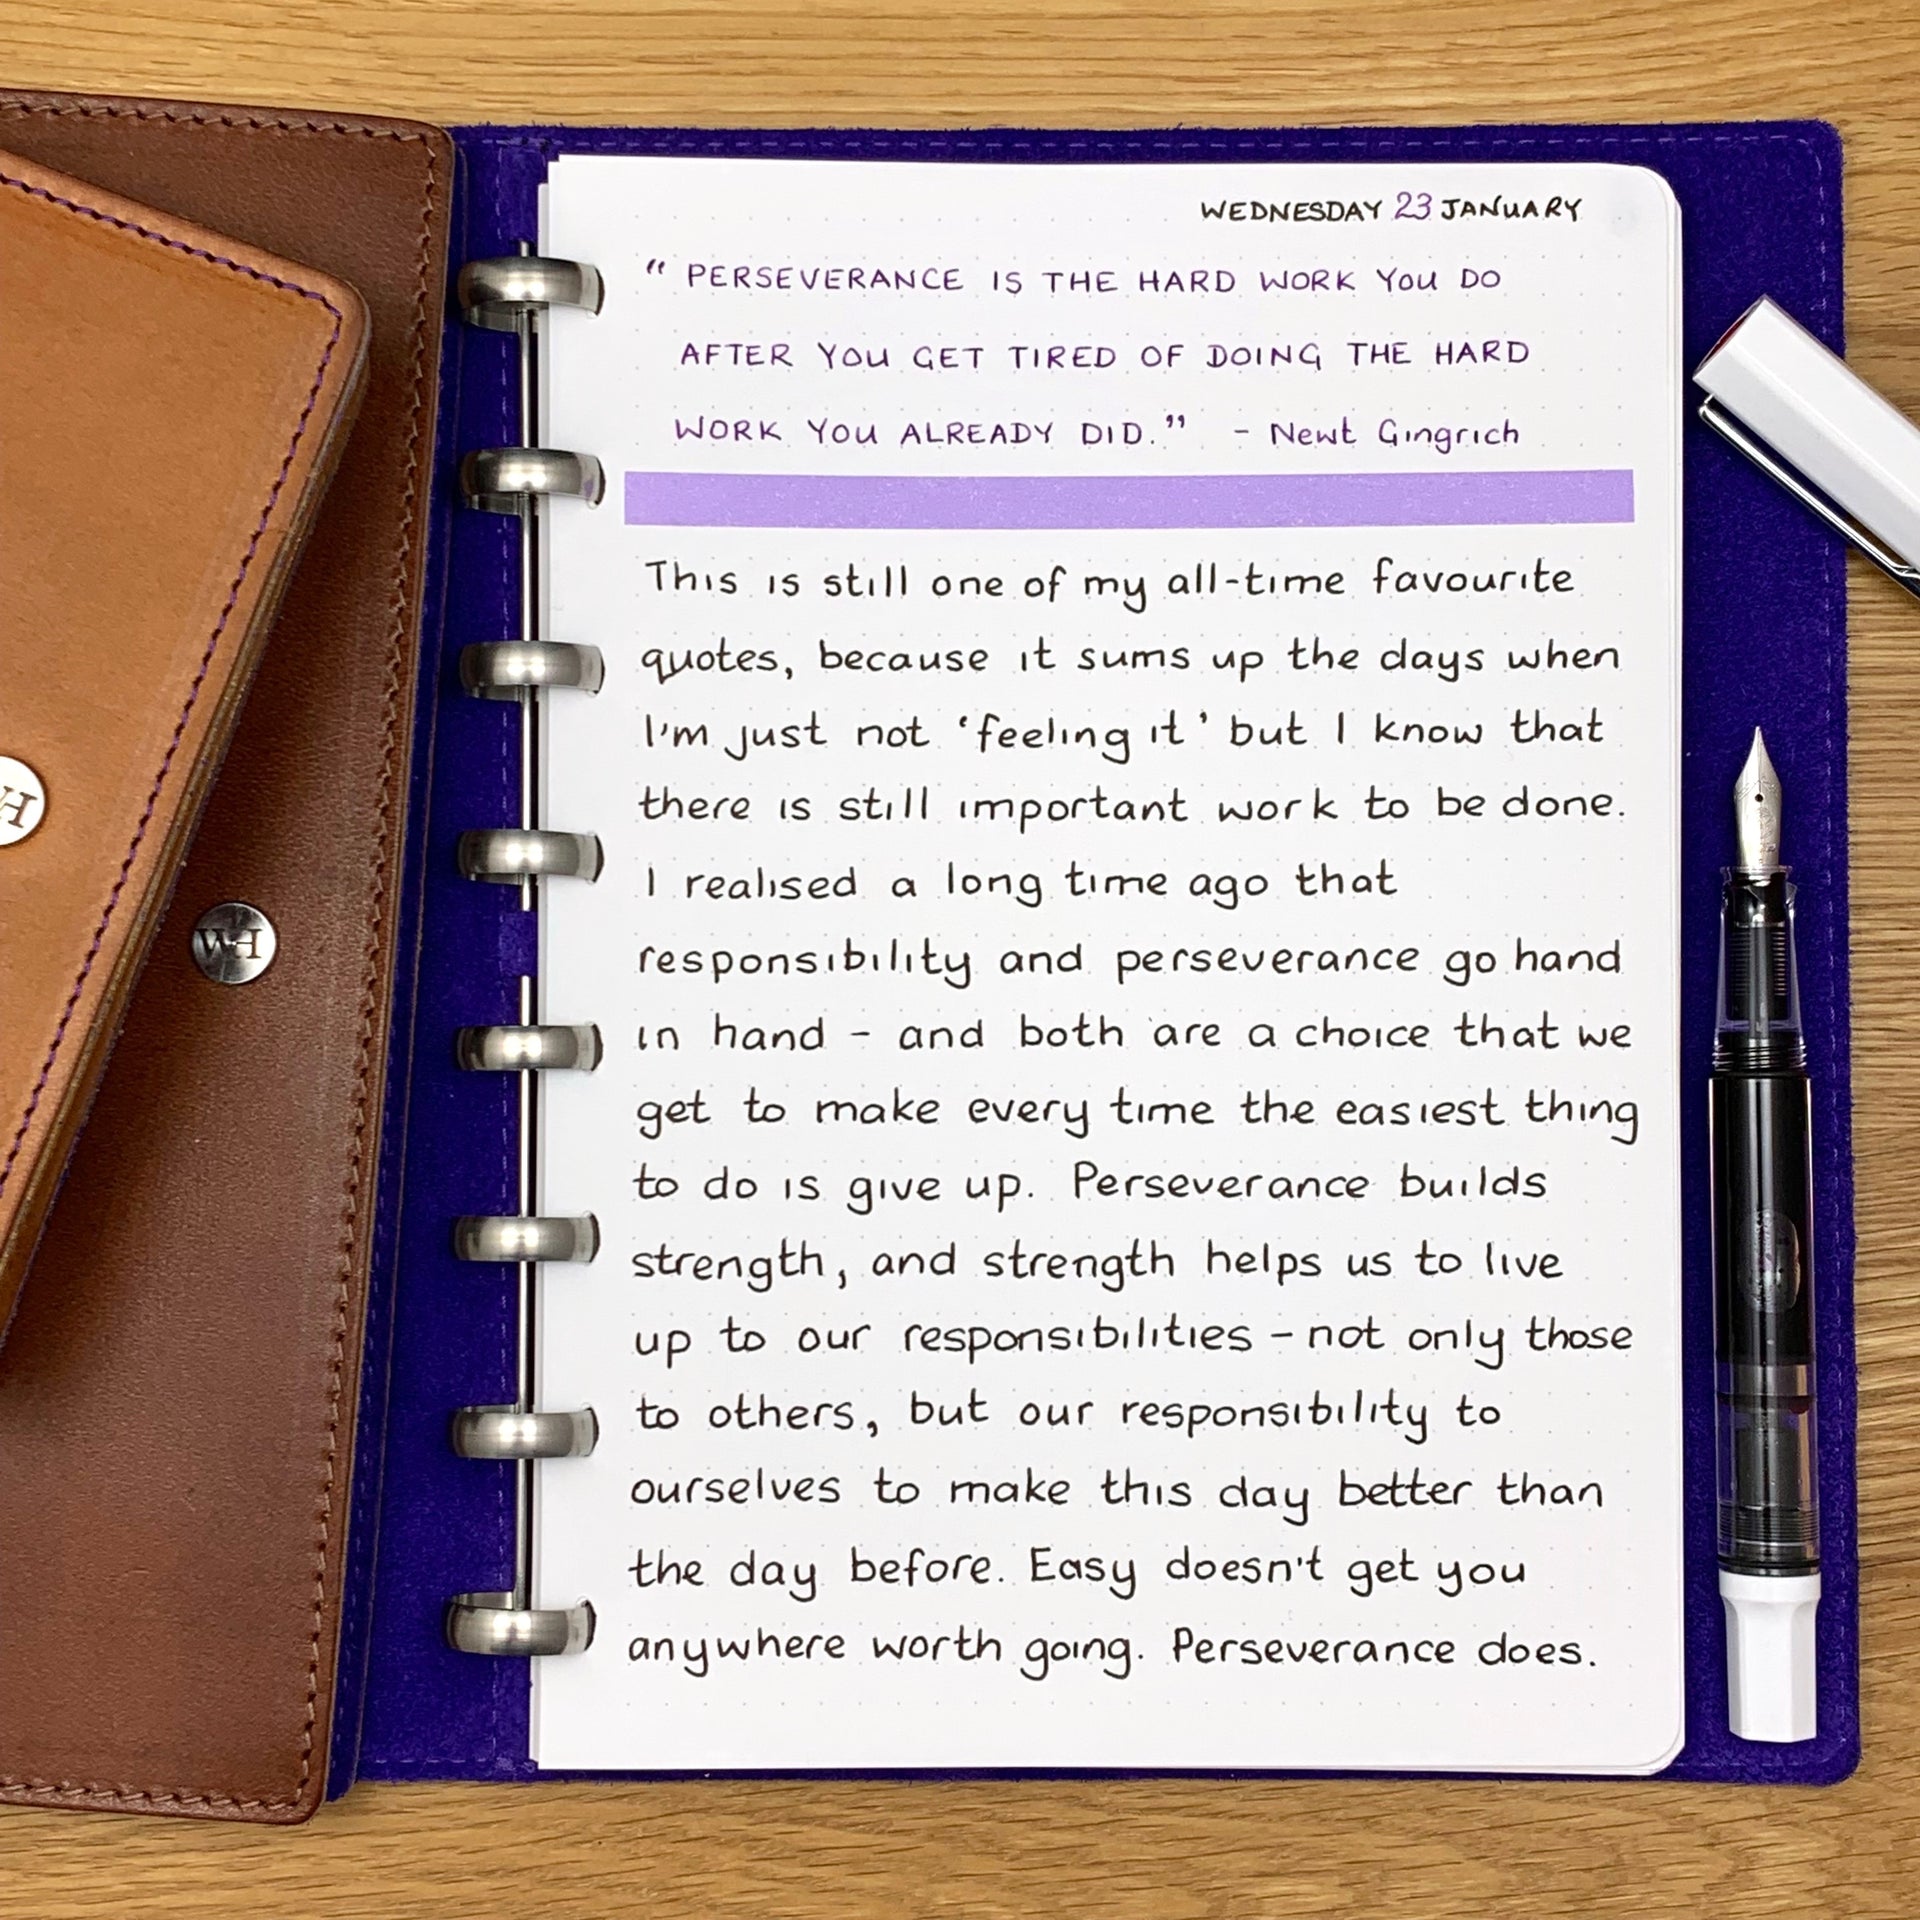 WEDNESDAY 23 JANUARY
“ PERSEVERANCE IS THE HARD WORK YOU DO
AFTER YOU GET TIRED OF DOING THE HARD
WORK YOU ALREADY DID.” - Newt Gingrich
This is still one of my all-time favourite
quotes, because it sums up the days when
I'm just not ‘feeling it’ but I know that
there is still important work to be done.
I realised a long time ago that
responsibility and perseverance go hand
in hand - and both are a choice that we
get to make every time the easiest thing
to do is give up. Perseverance builds
strength, and strength helps us to live
up to our responsibilities - not only those
to others, but our responsibility to
ourselves to make this day better than
the day before. Easy doesn't get you
anywhere worth going. Perseverance does.
WH